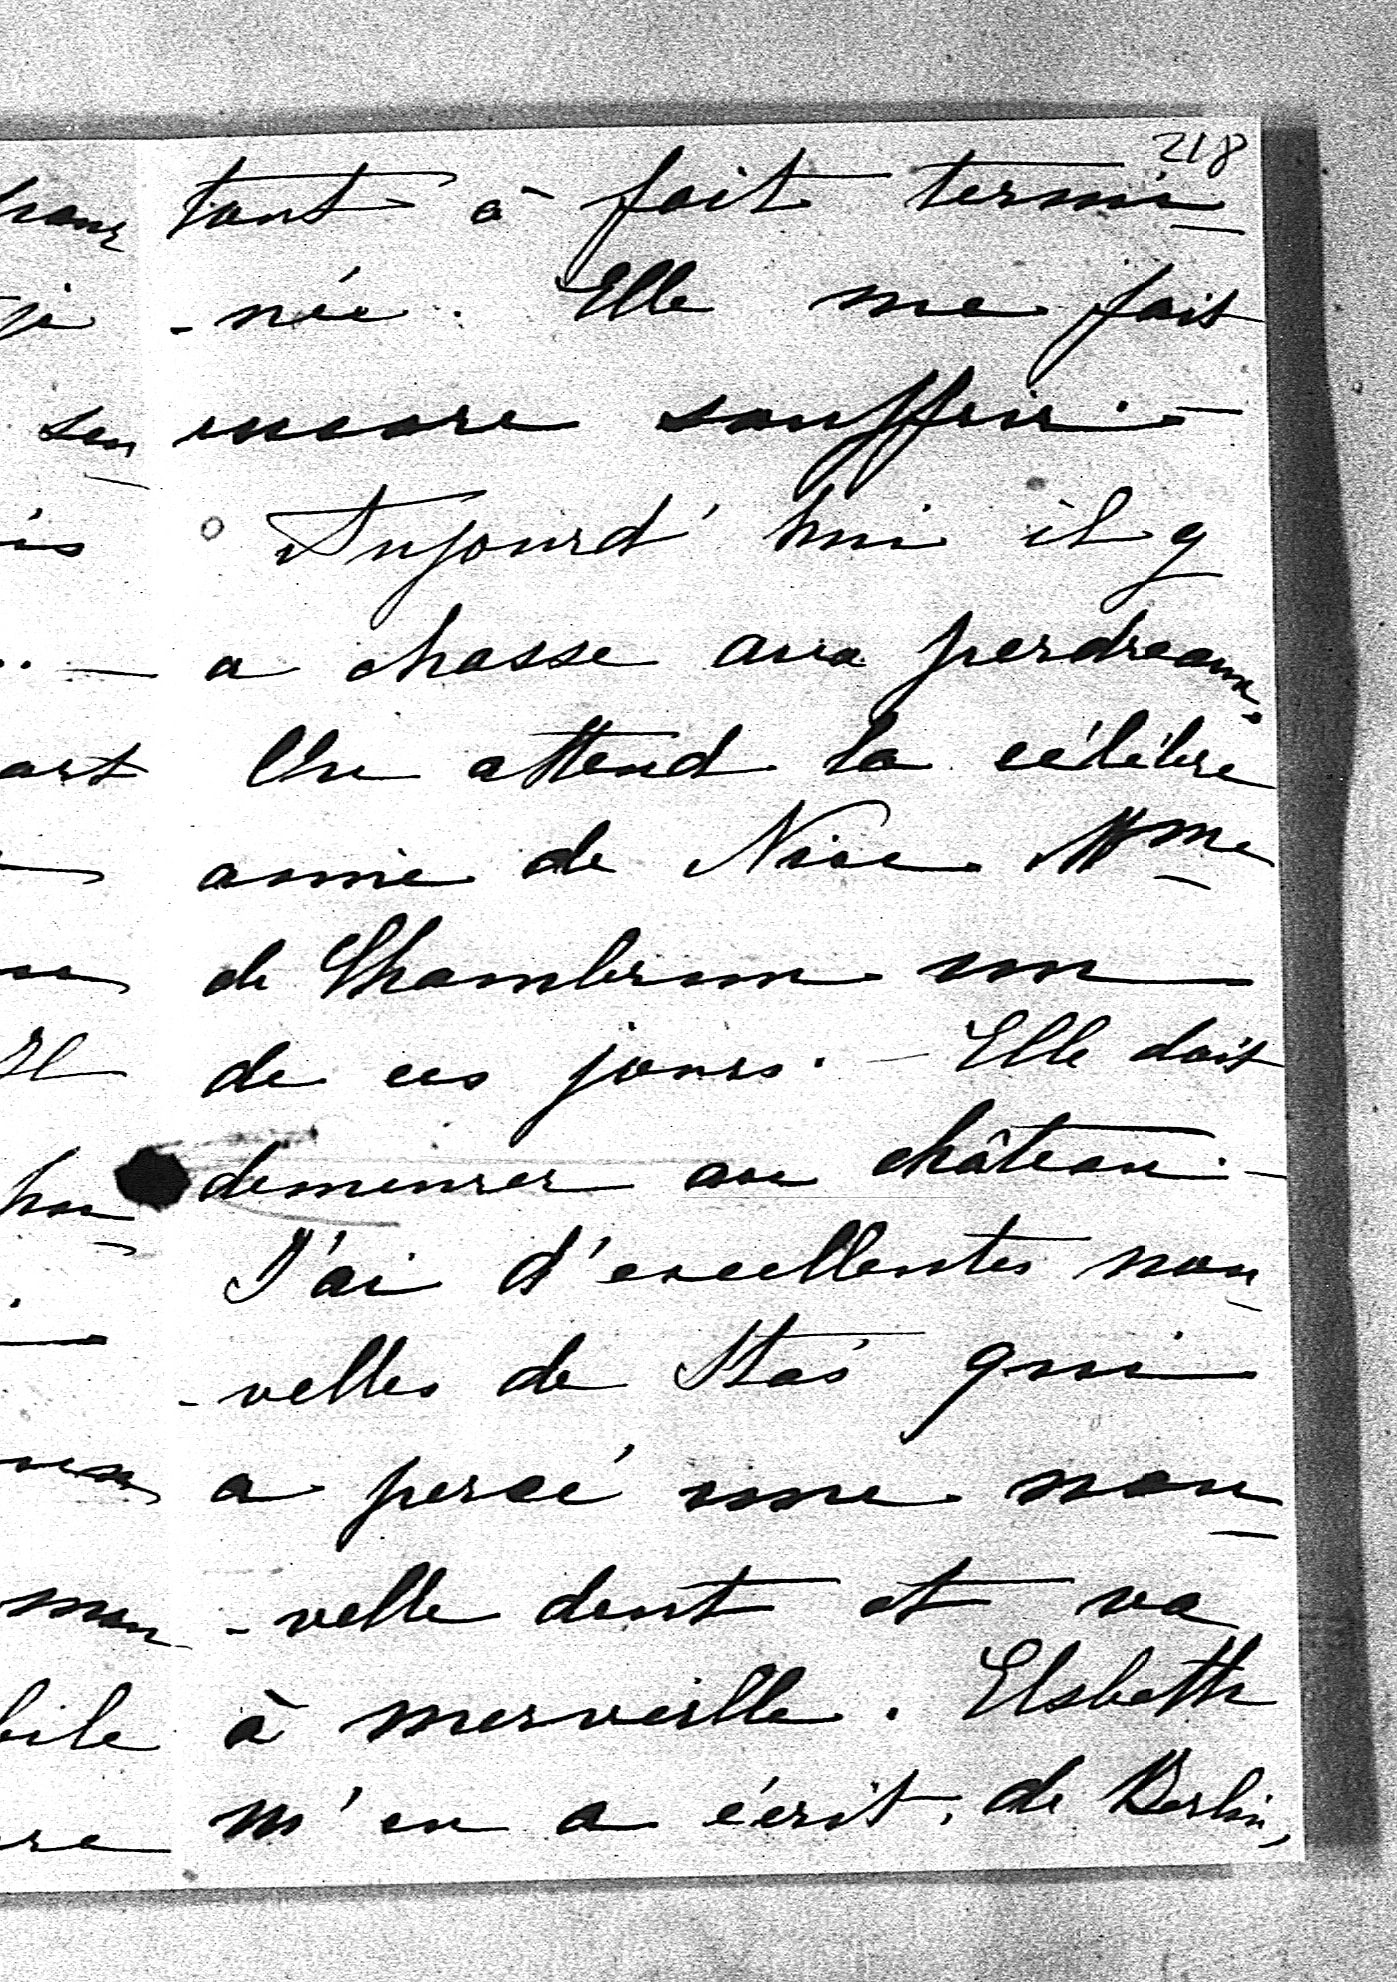 218
tout à fait termi-
-née. Elle me fait
encore souffrir. -
Aujourd'hui il y
a chasse aux perdreaux.
On attend la célèbre
amie de Nice Mme
de Chambrun un
de ces jours. - Elle doit
demeurer au château. -
J'ai d'excellentes nou-
-velles de Stas qui
a percé une nou-
-velle dent et va
à merveille. Elsbeth
m'en a écrit, de Berlin,